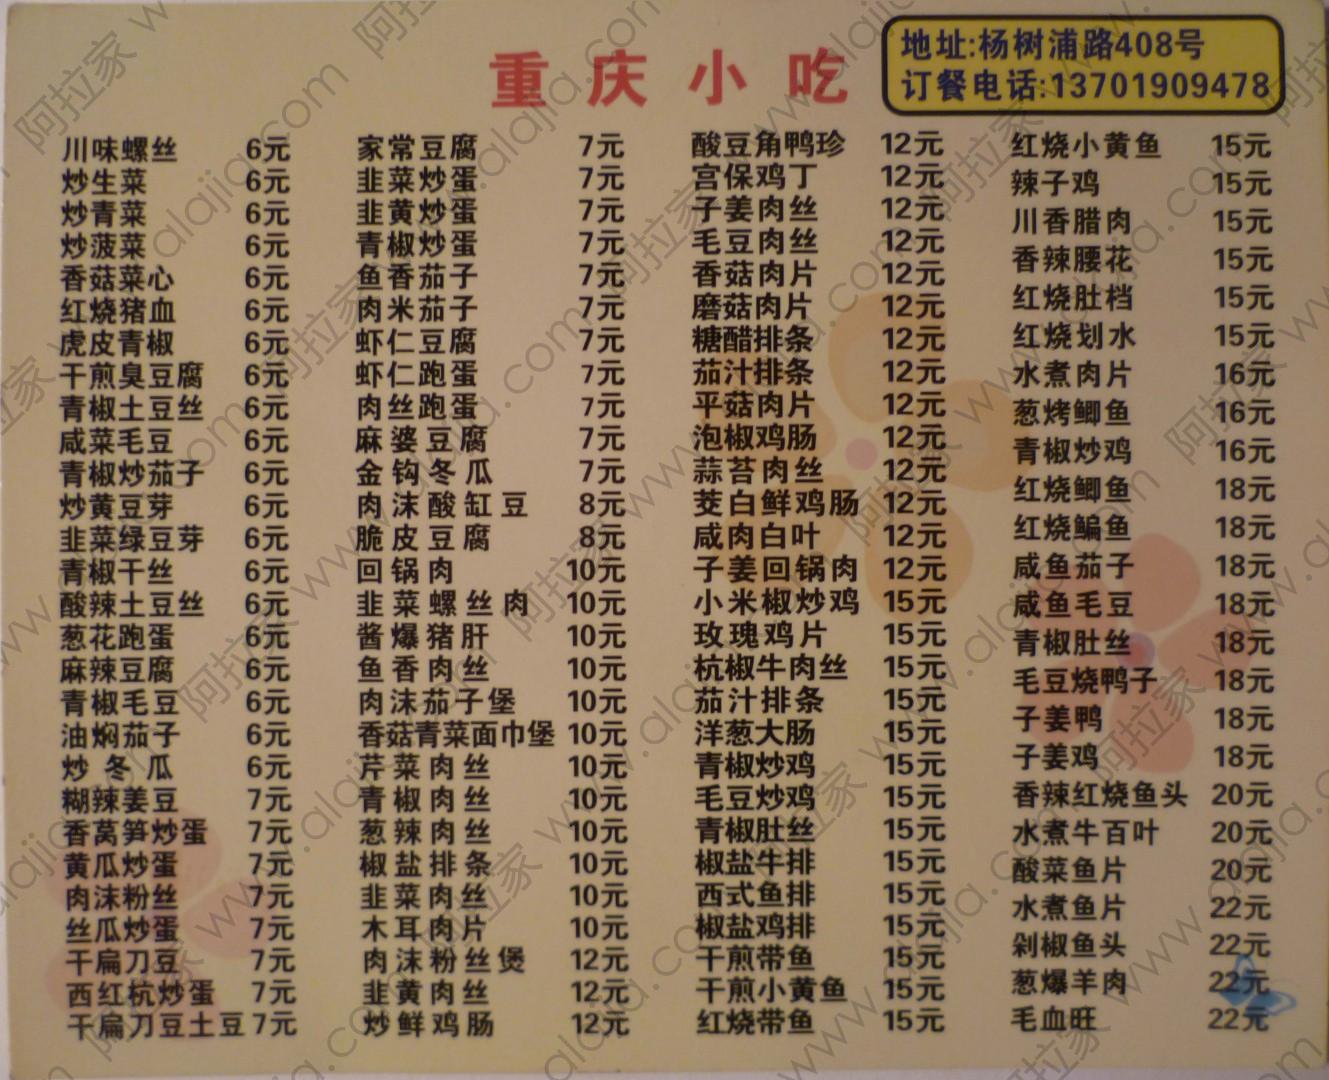 重庆小吃
地址:杨树浦路408号
订餐电话:13701909478
川味螺丝 6元
炒生菜 6元
炒青菜 6元
炒菠菜 6元
香菇菜心 6元
红烧猪血 6元
虎皮青椒 6元
干煎臭豆腐 6元
青椒土豆丝 6元
咸菜毛豆 6元
青椒炒茄子 6元
炒黄豆芽 6元
韭菜绿豆芽 6元
青椒干丝 6元
酸辣土豆丝 6元
葱花跑蛋 6元
麻辣豆腐 6元
青椒毛豆 6元
油焖茄子 6元
炒冬瓜 6元
糊辣姜豆 7元
香莴笋炒蛋 7元
黄瓜炒蛋 7元
肉沫粉丝 7元
丝瓜炒蛋 7元
干扁刀豆 7元
西红杭炒蛋 7元
干扁刀豆土豆 7元
家常豆腐 7元
韭菜炒蛋 7元
韭黄炒蛋 7元
青椒炒蛋 7元
鱼香茄子 7元
肉米茄子 7元
虾仁豆腐 7元
虾仁跑蛋 7元
肉丝跑蛋 7元
麻婆豆腐 7元
金钩冬瓜 7元
肉沫酸缸豆 8元
脆皮豆腐 8元
回锅肉 10元
韭菜螺丝肉 10元
酱爆猪肝 10元
鱼香肉丝 10元
肉沫茄子堡 10元
香菇青菜面巾堡 10元
芹菜肉丝 10元
青椒肉丝 10元
葱辣肉丝 10元
椒盐排条 10元
韭菜肉丝 10元
木耳肉片 10元
肉沫粉丝煲 12元
韭黄肉丝 12元
炒鲜鸡肠 12元
酸豆角鸭珍 12元
宫保鸡丁 12元
子姜肉丝 12元
毛豆肉丝 12元
香菇肉片 12元
磨菇肉片 12元
糖醋排条 12元
茄汁排条 12元
平菇肉片 12元
泡椒鸡肠 12元
蒜苔肉丝 12元
茭白鲜鸡肠 12元
咸肉白叶 12元
子姜回锅肉 12元
小米椒炒鸡 15元
玫瑰鸡片 15元
杭椒牛肉丝 15元
茄汁排条 15元
洋葱大肠 15元
青椒炒鸡 15元
毛豆炒鸡 15元
青椒肚丝 15元
椒盐牛排 15元
西式鱼排 15元
椒盐鸡排 15元
干煎带鱼 15元
干煎小黄鱼 15元
红烧带鱼 15元
红烧小黄鱼 15元
辣子鸡 15元
川香腊肉 15元
香辣腰花 15元
红烧肚档 15元
红烧划水 15元
水煮肉片 16元
葱烤鲫鱼 16元
青椒炒鸡 16元
红烧鲫鱼 18元
红烧鳊鱼 18元
咸鱼茄子 18元
咸鱼毛豆 18元
青椒肚丝 18元
毛豆烧鸭子 18元
子姜鸭 18元
子姜鸡 18元
香辣红烧鱼头 20元
水煮牛百叶 20元
酸菜鱼片 20元
水煮鱼片 22元
剁椒鱼头 22元
葱爆羊肉 22元
毛血旺 22元
阿拉家 www.alajia.com